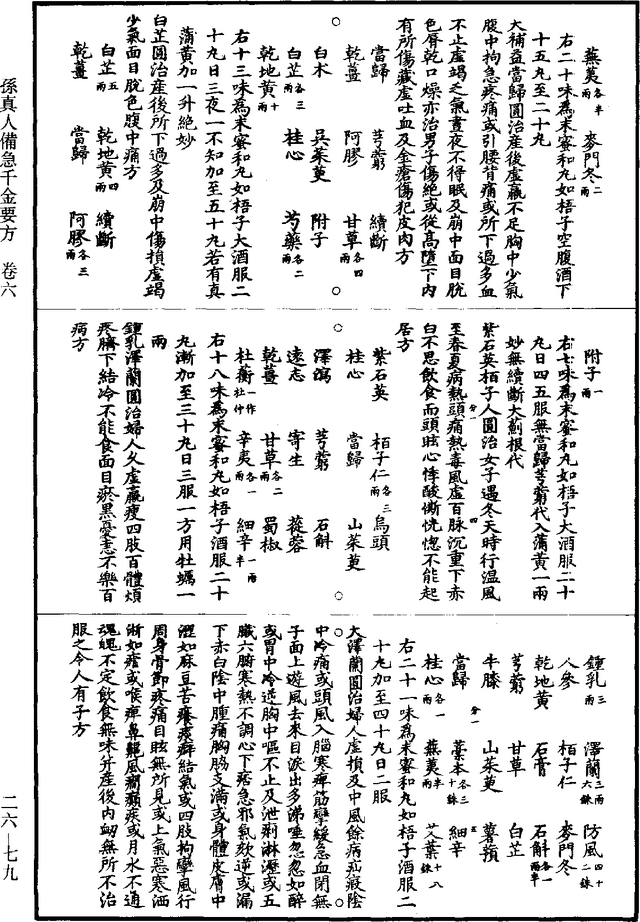 蕪荑各半兩 麥門冬二兩
右二十味為末蜜和丸如梧子空腹酒下
十五丸至二十丸
大補益當歸圓治產後虛羸不足胸中少氣
腹中拘急疼痛或引腰背痛或所下過多血
不止虛竭乏氣晝夜不得眠及崩中面目脫
色脣乾口燥亦治男子傷絕或從高墮下內
有所傷藏虛吐血及金瘡傷犯皮肉方
當歸 芎藭 續斷
乾薑 阿膠 甘草各四兩
白朮 吳茱萸 附子
白芷各三兩 桂心 芍藥各二兩
乾地黃十兩
右十三味為末蜜和丸如梧子大酒服二
十丸日三夜一不知加至五十丸若有真
蒲黃加一升絕妙
白芷圓治產後所下過多及崩中傷損虛竭
少氣面目脫色腹中痛方
白芷五兩 乾地黃四兩 續斷
乾薑 當歸 阿膠各三兩
附子一兩
右七味為末蜜和丸如梧子大酒服二十
丸日四五服無當歸芎藭代入蒲黃一兩
妙無續斷大薊根代
紫石英栢子人圓治女子遇冬天時行溫風
至春夏病熱頭痛熱毒風虛百脉沉重下赤
白不思飲食而頭眩心悸酸㾷恍惚不能起
居方
紫石英 栢子仁各三兩 烏頭
桂心 當歸 山茱萸
澤瀉 芎藭 石斛
遠志 寄生 蓯蓉
乾薑 甘草各二兩 蜀椒
杜蘅一作杜仲 辛夷各一兩 細辛一兩半
右十八味為末蜜和丸如梧子酒服二十
丸漸加至三十丸日三服一方用牡蠣一
兩
鍾乳澤蘭圓治婦人久虛羸瘦四肢百體煩
疼臍下結冷不能食面目瘀黑憂恚不樂百
病方
鍾乳三兩 澤蘭三兩六銖 防風四十二銖
人參 栢子仁 麥門冬
乾地黃 石膏 石斛各一兩半
芎藭 甘草 白芷
牛膝 山茱萸 薯蕷
當歸 藁本各三十銖 細辛
桂心各一兩 蕪荑半兩 艾葉十八銖
右二十一味為末蜜和丸如梧子酒服二
十丸加至四十丸日二服
大澤蘭圓治婦人虛損及中風餘病疝瘕陰
中冷痛或頭風入腦寒痺筋攣緩急血閉無
子面上遊風去來目淚出多涕唾忽忽如醉
或胃中冷逆胸中嘔不止及泄痢淋瀝或五
臟六腑寒熱不調心下痞急邪氣欬逆或漏
下赤白陰中腫痛胸脇支滿或身體皮膚中
澀如麻豆苦癢痰癖結氣或四肢拘攣風行
周身骨節疼痛目眩無所見或上氣惡寒洒
淅如瘧或喉痺鼻齆風癇癲疾或月水不通
魂魄不定飲食無味并產後內衂無所不治
服之令人有子方
孫真人備急千金要方 卷六
二六-七九